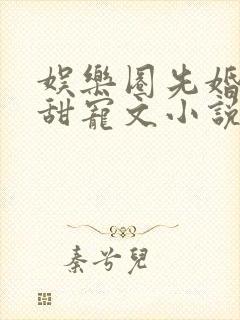 娛樂圈先婚
甜寵文小說
秦兮兒